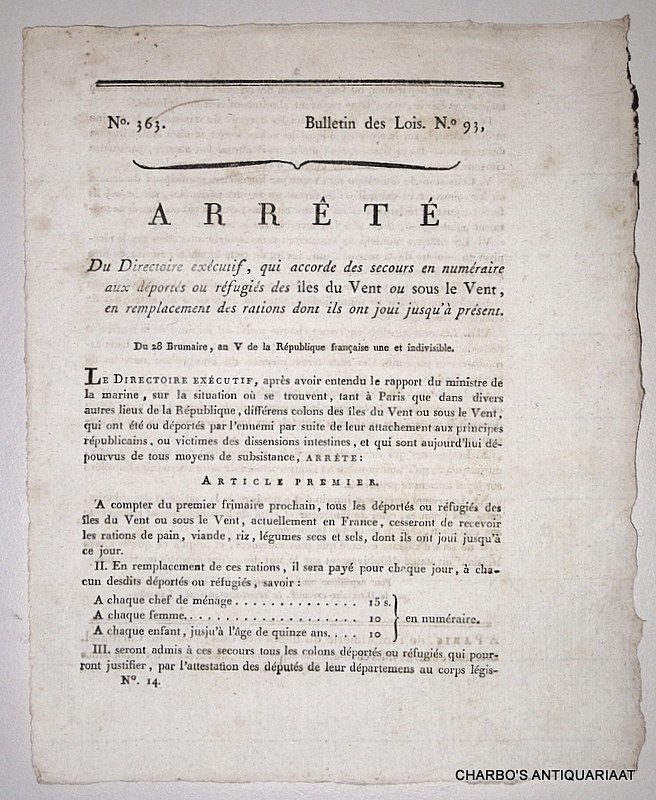 N.o 363. Bulletin des Lois. N.o 93,
ARRÊTÉ
Du Directoire exécutif, qui accorde des secours en numéraire
aux déportés ou réfugiés des îles du Vent ou sous le Vent,
en remplacement des rations dont ils ont joui jusqu'à présent.
Du 28 Brumaire, an V de la République française une et indivisible.
LE DIRECTOIRE EXÉCUTIF, après avoir entendu le rapport du ministre de
la marine, sur la situation où se trouvent, tant à Paris que dans divers
autres lieux de la République, différens colons des îles du Vent ou sous le Vent,
qui ont été ou déportés par l'ennemi par suite de leur attachement aux principes
républicains, ou victimes des dissensions intestines, et qui sont aujourd'hui dé-
pourvus de tous moyens de subsistance, ARRÊTE:
ARTICLE PREMIER.
A compter du premier frimaire prochain, tous les déportés ou réfugiés des
îles du Vent ou sous le Vent, actuellement en France, cesseront de recevoir
les rations de pain, viande, riz, légumes secs et sels, dont ils ont joui jusqu'à
ce jour.
II. En remplacement de ces rations, il sera payé pour chaque jour, à cha-
cun desdits déportés ou réfugiés, savoir:
A chaque chef de ménage.............. 15 s.
A chaque femme.................. 10 en numéraire.
A chaque enfant, jusju'à l'âge de quinze ans.... 10
III. seront admis à ces secours tous les colons déportés ou réfugiés qui pour-
ront justifier, par l'attestation des députés de leur départemens au corps légis-
N.o 14.
CHARBO'S ANTIQUARIAAT